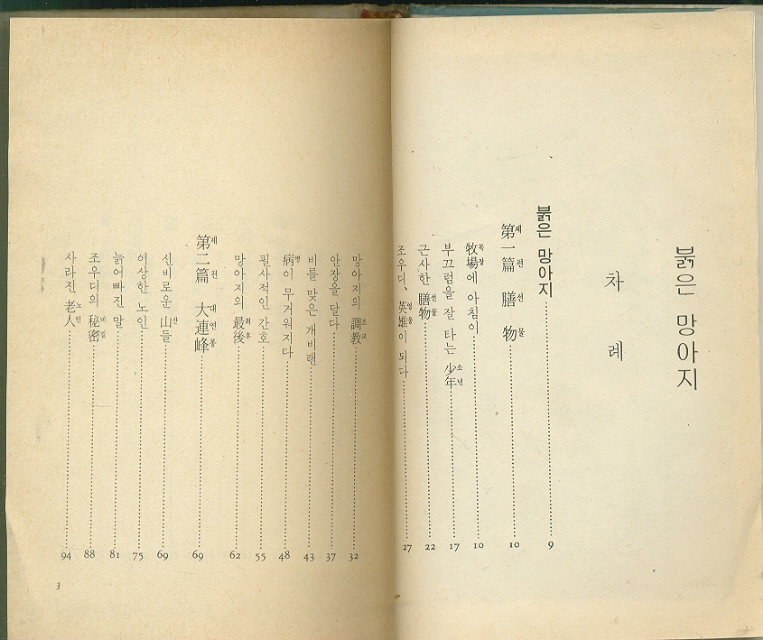 붉은 망아지
차 례
붉은 망아지 9
第一篇 膳物 10
제 전 선 물
牧場에 아침이 10
목장
부끄럼을 잘 타는 少年 17
소년
근사한 膳物 22
선물
조우디, 英雄이 되다 27
영웅
망아지의 調教 32
조교
안장을 달다 37
비를 맞은 개비랜 43
病이 무거워지다 48
병
필사적인 간호 55
망아지의 最後 62
최후
第二篇 大連峰 69
제 전 대연봉
신비로운 山들 69
산
이상한 노인 75
늙어빠진 말 81
조우디의 秘密 88
비밀
사라진 老人 94
노인
3